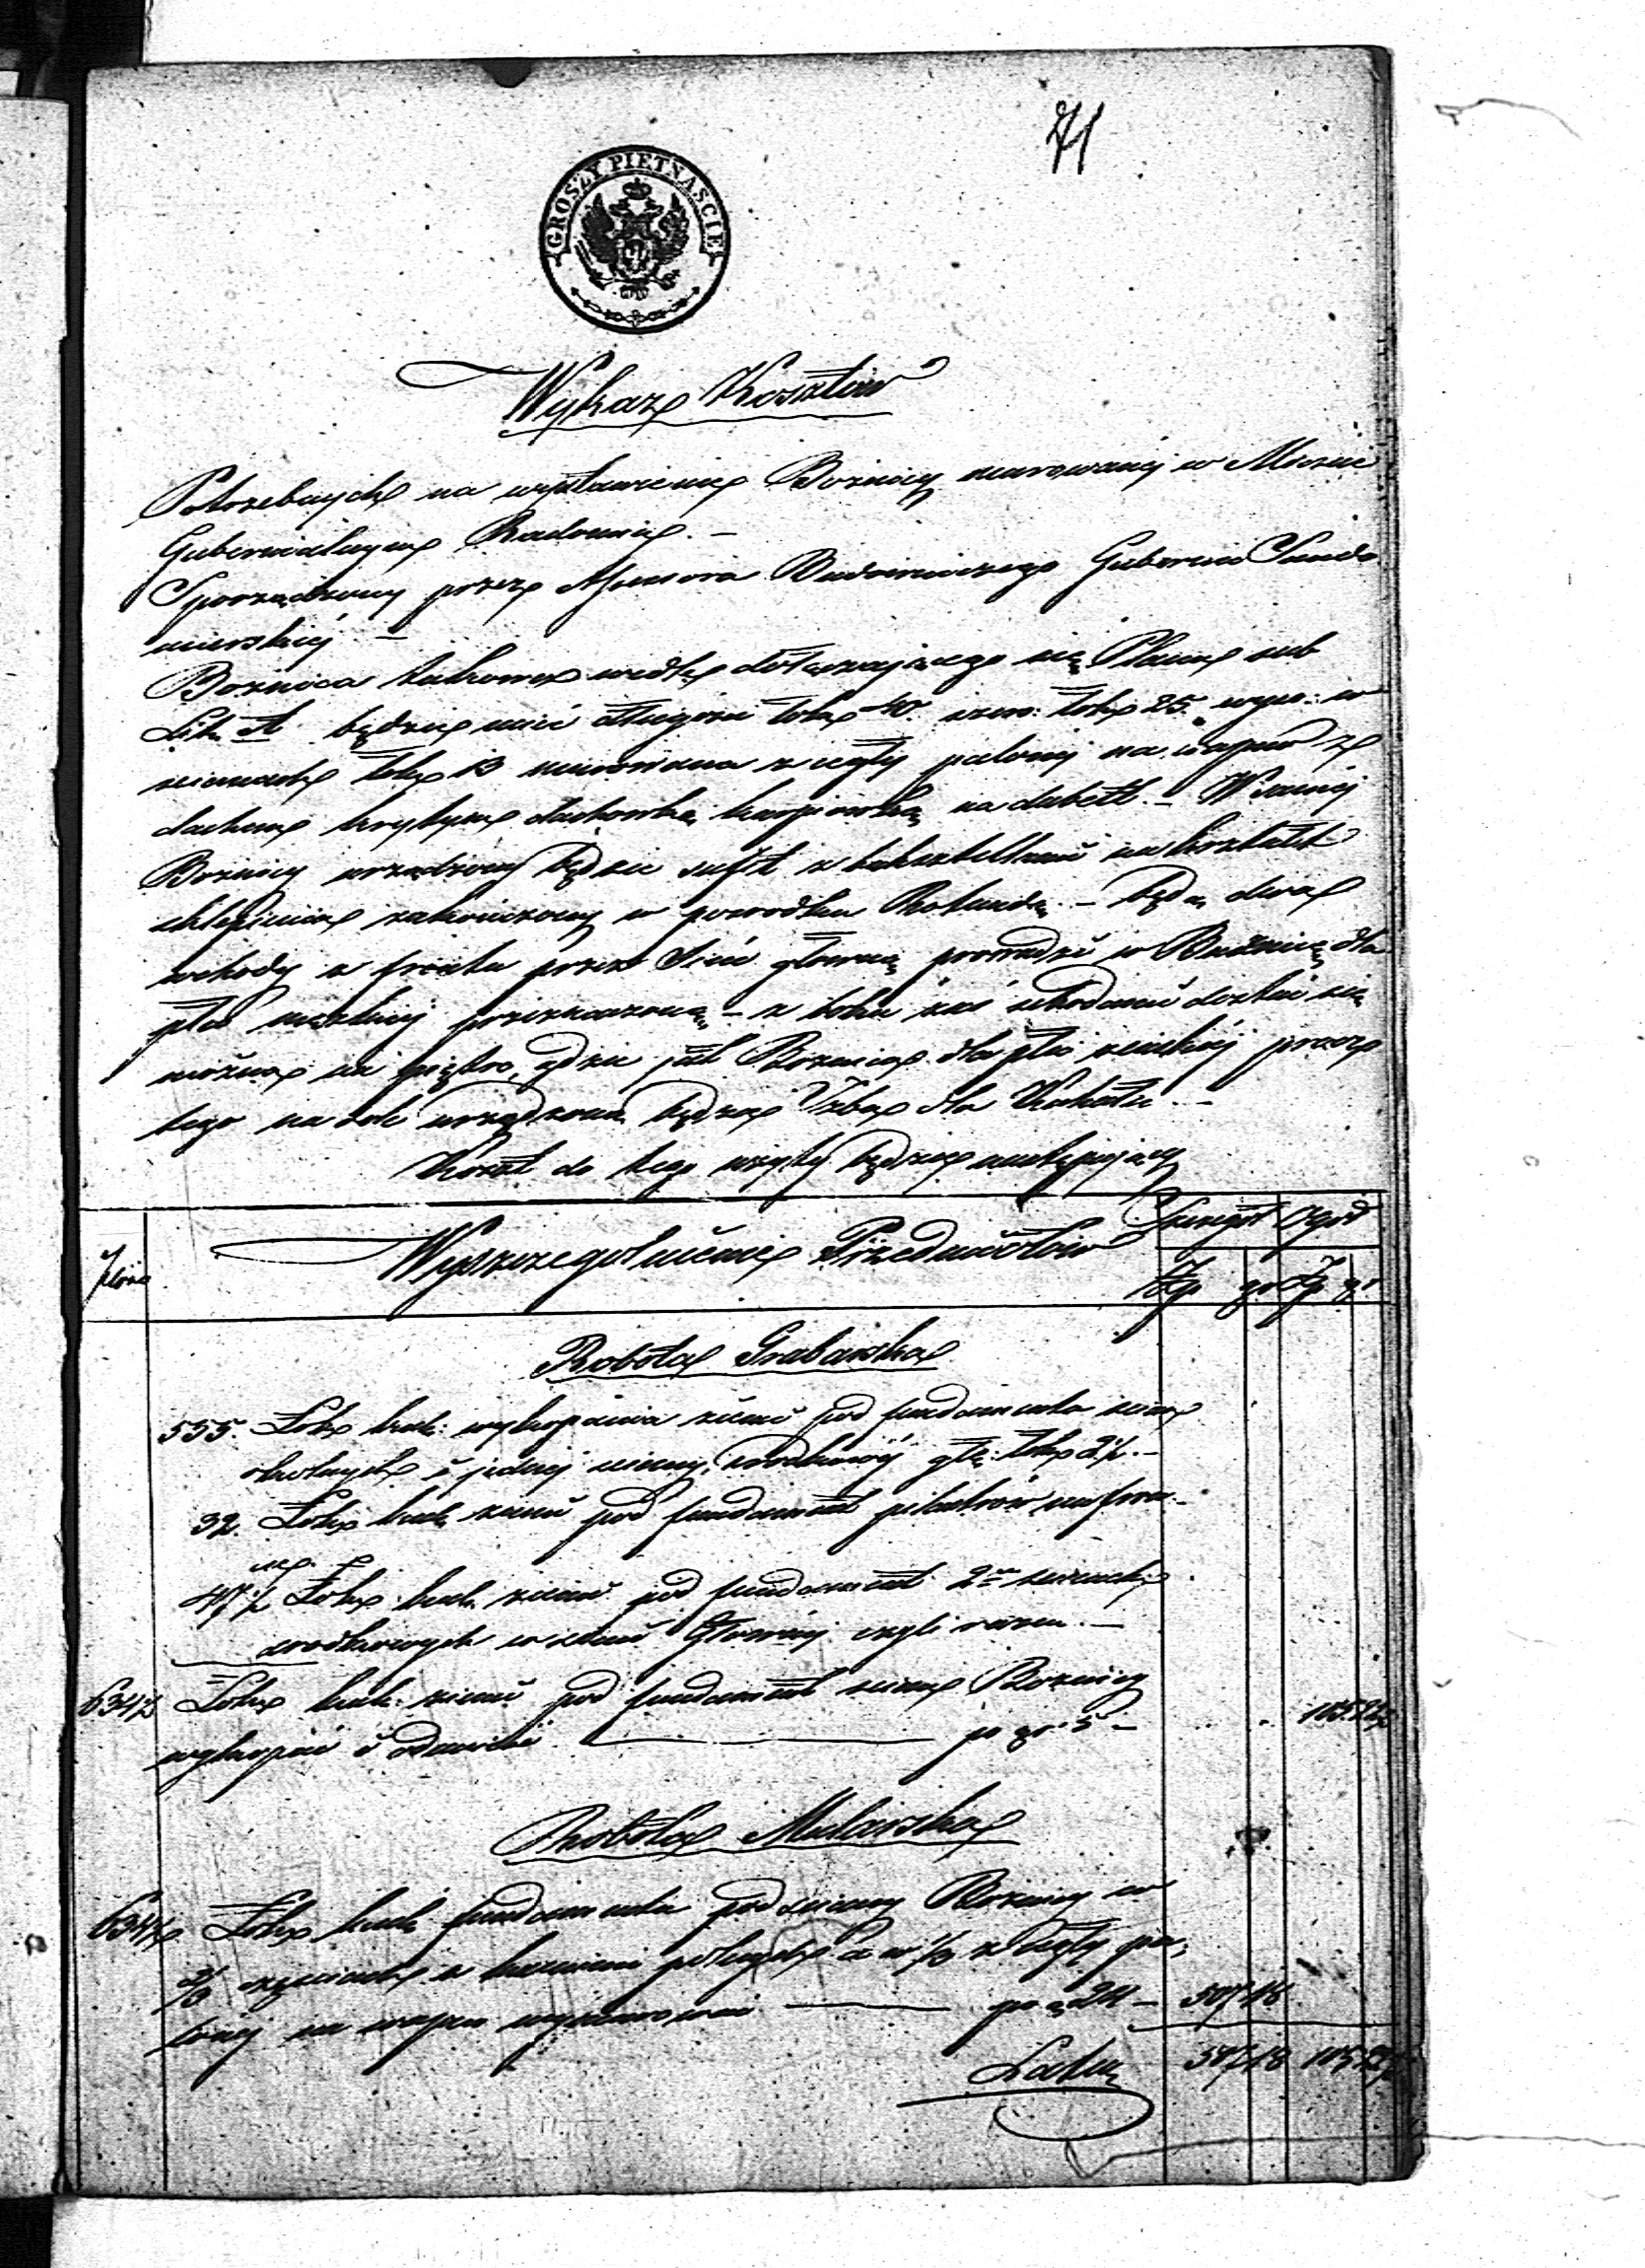 71
GROSZY PIETNAŚCIE
Wykaz Kosztów
Potrzebnych na wystawienie Bożnicy murowanéj w Mieście
Gubernialnym Radomiu. –
Sporządzony przez Assessora Budowniczego Gubernii Sando
mierskiéj –
Bożnica takowa wedle dołączającego się Planu sub
Lit. A będzie mieć długości łokci 40. szer: łokci 25. wyso: w
scianach łokci 13 murowana z cegły palonéj na wapno z
dachem krytym dachówką karpiówką na dubelt. – W saméj
Bożnicy urządzony będzie sufit z na kształt
sklepienia zakończony w posrodku Rotundą. – będą dwa
wchody z frontu przez Sień główną prowadzi w Bożnicę dla
płci męzkiej przeznaczoną – z boku zaś schodami dostać się
można na piętro, gdzie jest Bożnica dla płci żeńskiéj prócz
tego na dole urządzona będzie Izba dla Kahału. –
Koszt do tego użyty będzie następujący
Ilość Wyszczególnienie Przedmiotów Szczegół Ogół
Złp gr Złp gr
Robota Grabarska
555. Łokci kub: wykopania ziemi pod fundamenta scian
okolnych i jednéj sciany srodkowéj głę: łokci 2½. –
32. Łokci kub: ziemi pod fundament pilastrów na fron-
cie
47½ Łokci kub. ziemi pod fundament 2ch scianach
srodkowych w sieni Głównéj czyli razem. –
634½ Łokci kub: ziemi pod fundament scian Bożnicy
wykopać i odwieść po gr. 5 – 105 22½
Robota Mularska
634½ Łokci kub: fundamentu pod sciany Bożnicy w
2/3 częściach z kamieni polnych a w 1/3 z Cegły pa-
lonéj na wapno wymurować po g 24 – 507 18
Latus 507 18 105 22½